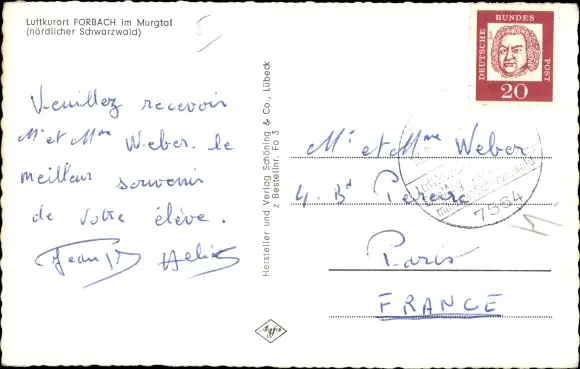 Luftkurort FORBACH im Murgtal
(nördlicher Schwarzwald)
Veuillez recevoir
Mr et Mme Weber. le
meilleur souvenir
de votre élève.
Jean
Hersteller und Verlag Schöning & Co., Lübeck
z Bestellnr. Fo 3
Agfa
DEUTSCHE
BUNDES
POST
20
7564
Mr et Mme Weber
4. Bd Pereire
Paris
FRANCE